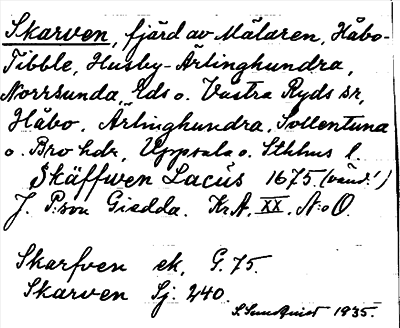 Skarven, fjärd av Mälaren, Håbo-
Tibble, Husby-Ärlinghundra,
Norrsunda, Eds o. Västra Ryds sr,
Håbo, Ärlinghundra, Sollentuna
o. Bro hdr, Uppsala o. Sthlms l.
Skäffwen Lacus 1675 (vänd!)
J. P:son Giedda. KrA, XX, N:o 0.
Skarfven ek. G. 75.
Skarven Sj. 240.
S. Sundquist 1935.